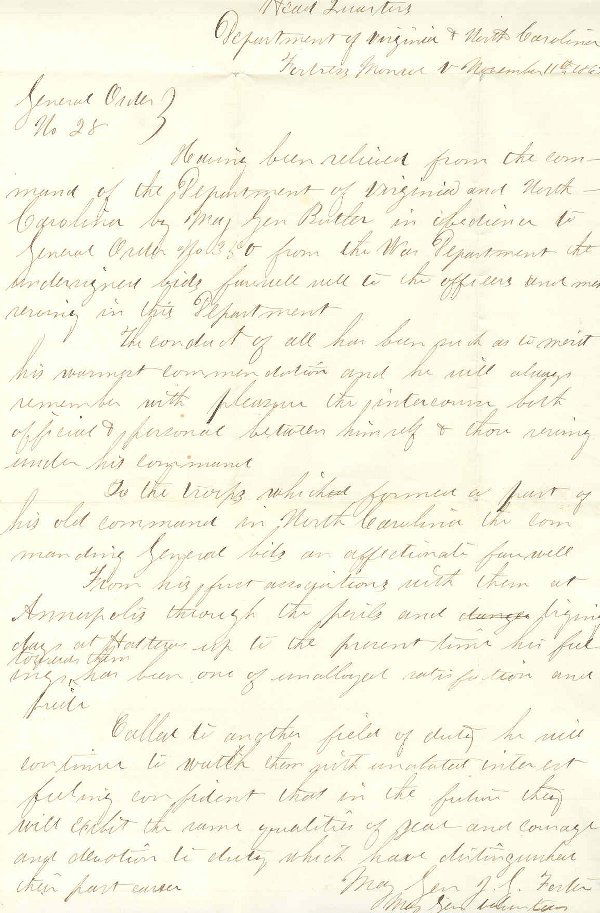 Head Quarters
Department of Virginia & North Carolina
Fortress Monroe V November 11th 186
General Order
No 28
Having been relieved from the com-
mand of the Department of Virginia and North-
Carolina by Maj Gen Butler in obedience to
General Order No 350 from the War Department the
undersigned bids farewell to the officers and men
serving in this Department
The conduct of all has been such as to merit
his warmest commendation and he will always
remember with pleasure the intercourse both
official & personal between himself & those serving
under his command
To the troops which formed a part of
his old command in North Carolina the com
manding General bids an affectionate farewell
From his first associations with them at
Annapolis through the perils and trying
days at Hatteras up to the present time his feel-
towards them
ings has been one of unalloyed satisfaction and
pride
Called to another field of duty he will
continue to watch them with unabated interest
feeling confident that in the future they
will exibit the same qualities of zeal and courage
and devotion to duty which have distinguished
their past career
Maj Gen J. G. Foster
Maj Gen Volunteers